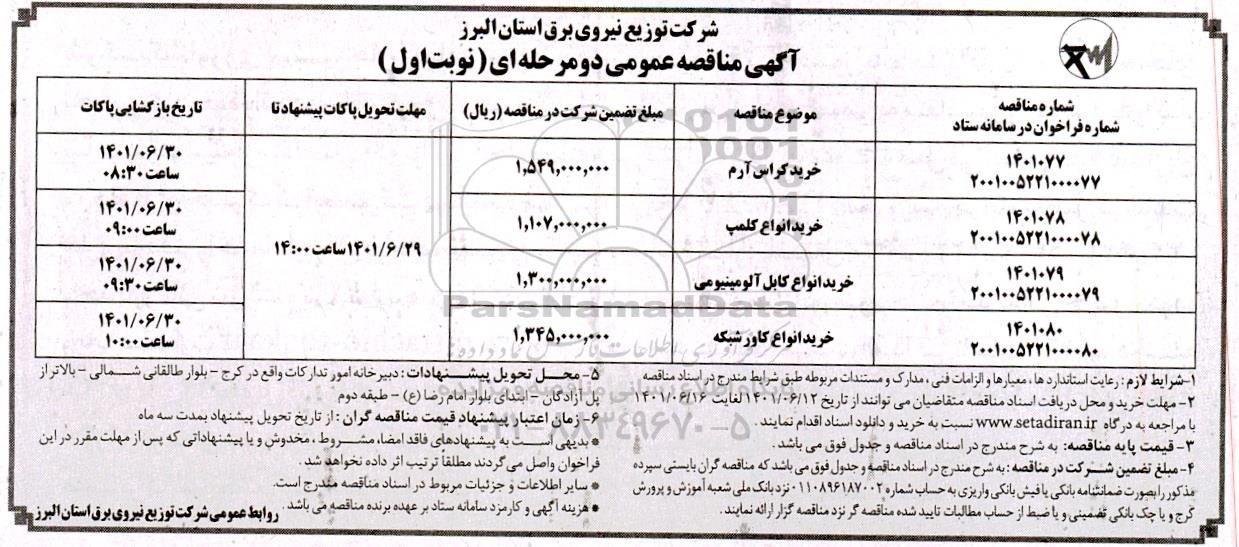 شرکت توزیع نیروی برق استان البرز
آگهی مناقصه عمومی دو مرحله ای (نوبت اول)
شماره مناقصه
شماره فراخوان در سامانه ستاد
موضوع مناقصه
مبلغ تضمین شرکت در مناقصه (ریال)
مهلت تحویل پاکات پیشنهاد تا
تاریخ بازگشایی پاکات
۱۴۰۱۰۷۷
۲۰۰۱۰۰۵۲۲۱۰۰۰۰۷۷
خرید کراس آرم
۱,۵۴۹,۰۰۰,۰۰۰
۱۴۰۱/۶/۲۹ ساعت ۱۴:۰۰
۱۴۰۱/۰۶/۳۰
ساعت ۰۸:۳۰
۱۴۰۱۰۷۸
۲۰۰۱۰۰۵۲۲۱۰۰۰۰۷۸
خرید انواع کلمپ
۱,۱۰۷,۰۰۰,۰۰۰
۱۴۰۱/۰۶/۳۰
ساعت ۰۹:۰۰
۱۴۰۱۰۷۹
۲۰۰۱۰۰۵۲۲۱۰۰۰۰۷۹
خرید انواع کابل آلومینیومی
۱,۳۰۰,۰۰۰,۰۰۰
۱۴۰۱/۰۶/۳۰
ساعت ۰۹:۳۰
۱۴۰۱۰۸۰
۲۰۰۱۰۰۵۲۲۱۰۰۰۰۸۰
خرید انواع کاور شبکه
۱,۳۴۵,۰۰۰,۰۰۰
۱۴۰۱/۰۶/۳۰
ساعت ۱۰:۰۰
ParsNamadData
۰۲۱-۸۸۳۴۹۶۷۰-۵
۱-شرایط لازم : رعایت استاندارد ها ، معیارها و الزامات فنی ، مدارک و مستندات مربوطه طبق شرایط مندرج در اسناد مناقصه
۲- مهلت خرید و محل دریافت اسناد مناقصه متقاضیان می توانند از تاریخ ۱۴۰۱/۰۶/۱۲ لغایت ۱۴۰۱/۰۶/۱۶
با مراجعه به درگاه www.setadiran.ir نسبت به خرید و دانلود اسناد اقدام نمایند .
۳- قیمت پایه مناقصه: به شرح مندرج در اسناد مناقصه و جدول فوق می باشد .
۴-مبلغ تضمین شرکت در مناقصه : به شرح مندرج در اسناد مناقصه و جدول فوق می باشد که مناقصه گران بایستی سپرده
مذکور را بصورت ضمانتنامه بانکی یا فیش بانکی واریزی به حساب شماره ۰۱۱۰۸۹۶۱۸۷۰۰۲ نزد بانک ملی شعبه آموزش و پرورش
کرج و یا چک بانکی تضمینی و یا ضبط از حساب مطالبات تایید شده مناقصه گر نزد مناقصه گزار ارائه نمایند.
۵-محل تحویل پیشنهادات : دبیرخانه امور تدارکات واقع در کرج - بلوار طالقانی شمالی - بالاتر از
پل آزادگان - ابتدای بلوار امام رضا (ع) - طبقه دوم
۶- زمان اعتبار پیشنهاد قیمت مناقصه گران : از تاریخ تحویل پیشنهاد بمدت سه ماه
* بدیهی است به پیشنهادهای فاقد امضاء مشروط ، مخدوش و یا پیشنهاداتی که پس از مهلت مقرر در این
فراخوان واصل می گردند مطلقاً ترتیب اثر داده نخواهد شد .
* سایر اطلاعات و جزئیات مربوط در اسناد مناقصه مندرج است.
* هزینه آگهی و کارمزد سامانه ستاد بر عهده برنده مناقصه می باشد .
روابط عمومی شرکت توزیع نیروی برق استان البرز